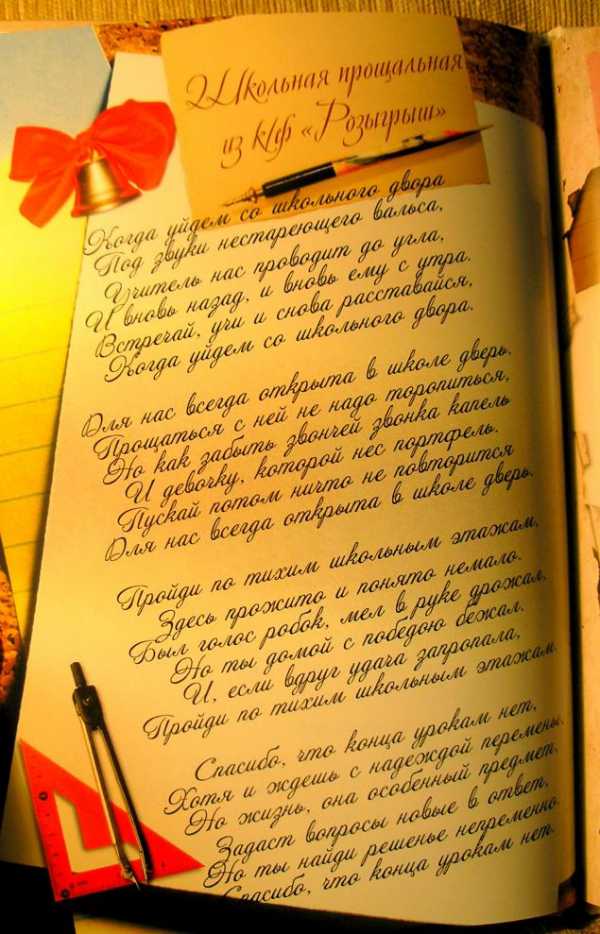 Школьная прощальная
из к/ф «Розыгрыш»
Когда уйдем со школьного двора
Под звуки нестареющего вальса,
Учитель нас проводит до угла,
И вновь назад, и вновь ему с утра.
Встречай, учи и снова расставайся,
Когда уйдем со школьного двора.
Для нас всегда открыта в школе дверь.
Прощаться с ней не надо торопиться,
Но как забыть звончей звонка капель
И девочку, которой нес портфель.
Пускай потом ничто не повторится
Для нас всегда открыта в школе дверь.
Пройди по тихим школьным этажам,
Здесь прожито и понято немало.
Был голос робок, мел в руке дрожал,
Но ты домой с победою бежал.
И, если вдруг удача запропала,
Пройди по тихим школьным этажам.
Спасибо, что конца урокам нет,
Хотя и ждешь с надеждой перемены.
Но жизнь, она особенный предмет,
Задаст вопросы новые в ответ,
Но ты найди решенье непременно
Спасибо, что конца урокам нет.